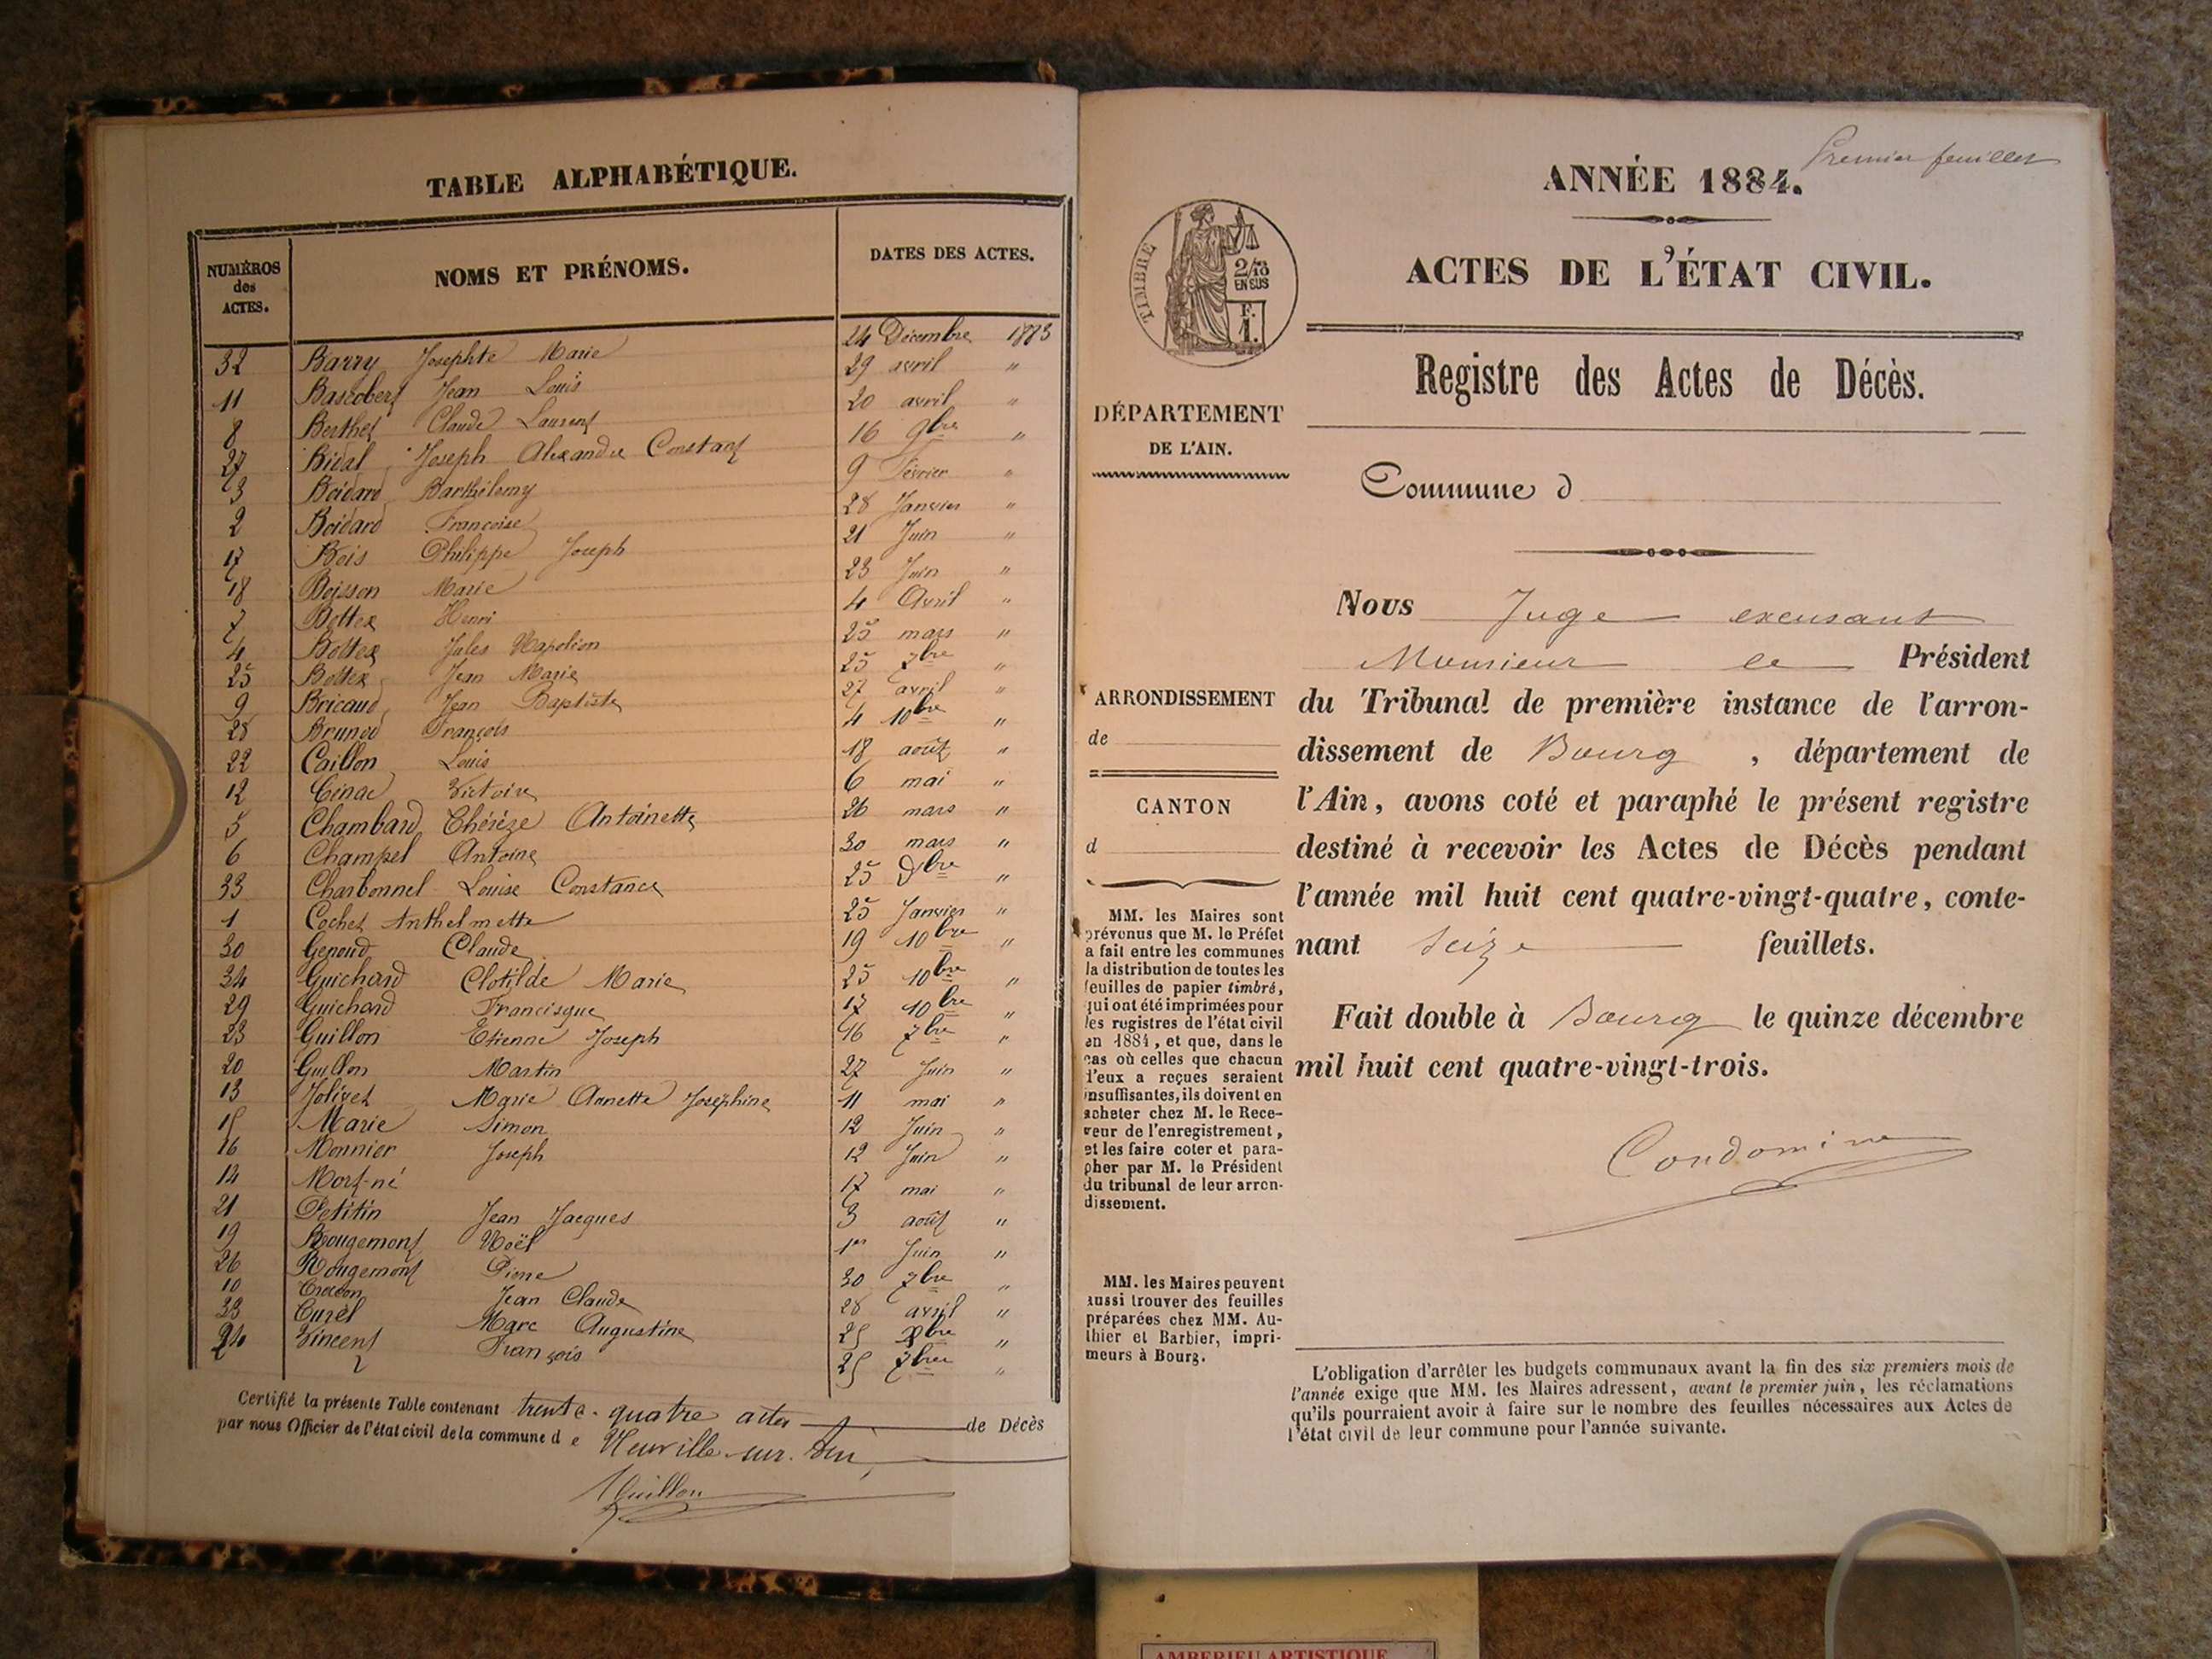 TABLE ALPHABÉTIQUE.
NUMÉROS des ACTES. NOMS ET PRÉNOMS. DATES DES ACTES.
32 Barry Josephte Marie 24 Décembre 1883
11 Bascobert Jean Louis 29 avril "
8 Berthet Claude Laurent 20 avril "
27 Bival Joseph Alexandre Constant 16 9bre "
3 Boidard Barthélemy 9 Février "
2 Boidard Françoise 28 Janvier "
17 Bois Philippe Joseph 21 Juin "
18 Boisson Marie 23 Juin "
7 Bottex Henri 4 Avril "
4 Bottex Jules Napoléon 25 mars "
25 Bottex Jean Marie 25 7bre "
9 Bricaud Jean Baptiste 27 avril "
28 Brunod François 4 10bre "
22 Caillon Louis 18 août "
12 Cénac Victoire 6 mai "
5 Chambard Thérèze Antoinette 26 mars "
6 Champel Antoine 30 mars "
33 Charbonnel Louise Constance 25
1 Cochet Anthelmette 25 Janvier "
30 Genoud Claude 19 10bre "
34 Guichard Clotilde Marie 25 10bre "
29 Guichard Francisque 17 10bre "
23 Guillon Etienne Joseph 16 7bre "
20 Guillon Martin 27 Juin "
13 Jolivet Marie Annette Joséphine 11 mai "
15 Marie Simon 12 Juin "
16 Monnier Joseph 12 Juin "
14 Mort-né 17 mai "
21 Petitin Jean Jacques 3 août "
19 Rougemont Noël 1er Juin "
26 Rougemont Pierre 30 7bre "
10 Jean Claude 28 avril "
33 Curel Marc Augustine 25
24 Vincent François 25 7bre "
Certifié la présente Table contenant trente-quatre actes de Décès
par nous Officier de l'état civil de la commune d e Neuville-sur-Ain,
Guillon
Premier feuillet
ANNÉE 1884.
ACTES DE L'ÉTAT CIVIL.
TIMBRE
2/10 EN SUS
F. 1.
Registre des Actes de Décès.
DÉPARTEMENT
DE L'AIN.
Commune d
ARRONDISSEMENT
de
CANTON
d
MM. les Maires sont
prévenus que M. le Préfet
a fait entre les communes
la distribution de toutes les
feuilles de papier timbré,
qui ont été imprimées pour
les registres de l'état civil
en 1884, et que, dans le
cas où celles que chacun
d'eux a reçues seraient
insuffisantes, ils doivent en
acheter chez M. le Rece-
veur de l'enregistrement,
et les faire coter et para-
pher par M. le Président
du tribunal de leur arron-
dissement.
MM. les Maires peuvent
aussi trouver des feuilles
préparées chez MM. Au-
thier et Barbier, impri-
meurs à Bourg.
Nous Juge excusant
Monsieur le Président
du Tribunal de première instance de l'arron-
dissement de Bourg, département de
l'Ain, avons coté et paraphé le présent registre
destiné à recevoir les Actes de Décès pendant
l'année mil huit cent quatre-vingt-quatre, conte-
nant seize feuillets.
Fait double à Bourg le quinze décembre
mil huit cent quatre-vingt-trois.
Condomine
L'obligation d'arrêter les budgets communaux avant la fin des six premiers mois de
l'année exige que MM. les Maires adressent, avant le premier juin, les réclamations
qu'ils pourraient avoir à faire sur le nombre des feuilles nécessaires aux Actes de
l'état civil de leur commune pour l'année suivante.
AMBERIEU ARTISTIQUE